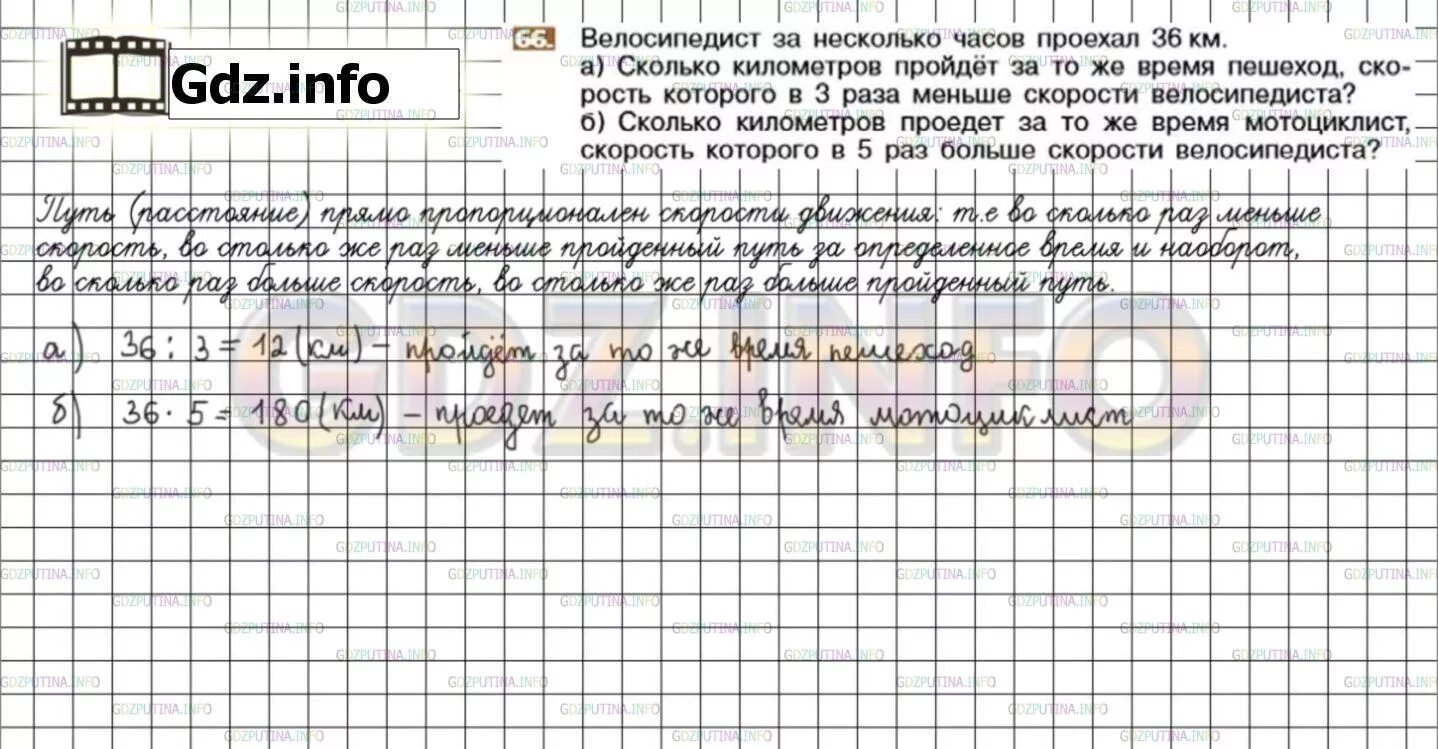 Gdz.info
66. Велосипедист за несколько часов проехал 36 км.
а) Сколько километров пройдёт за то же время пешеход, ско-
рость которого в 3 раза меньше скорости велосипедиста?
б) Сколько километров проедет за то же время мотоциклист,
скорость которого в 5 раз больше скорости велосипедиста?
Путь (расстояние) прямо пропорционален скорости движения: т.е во сколько раз меньше
скорость, во столько же раз меньше пройденный путь за определенное время и наоборот,
во сколько раз больше скорость, во столько же раз больше пройденный путь.
а) 36 : 3 = 12 (км) – пройдёт за то же время пешеход
б) 36 · 5 = 180 (км) – проедет за то же время мотоциклист
GDZ.INFO
GDZPUTINA.INFO